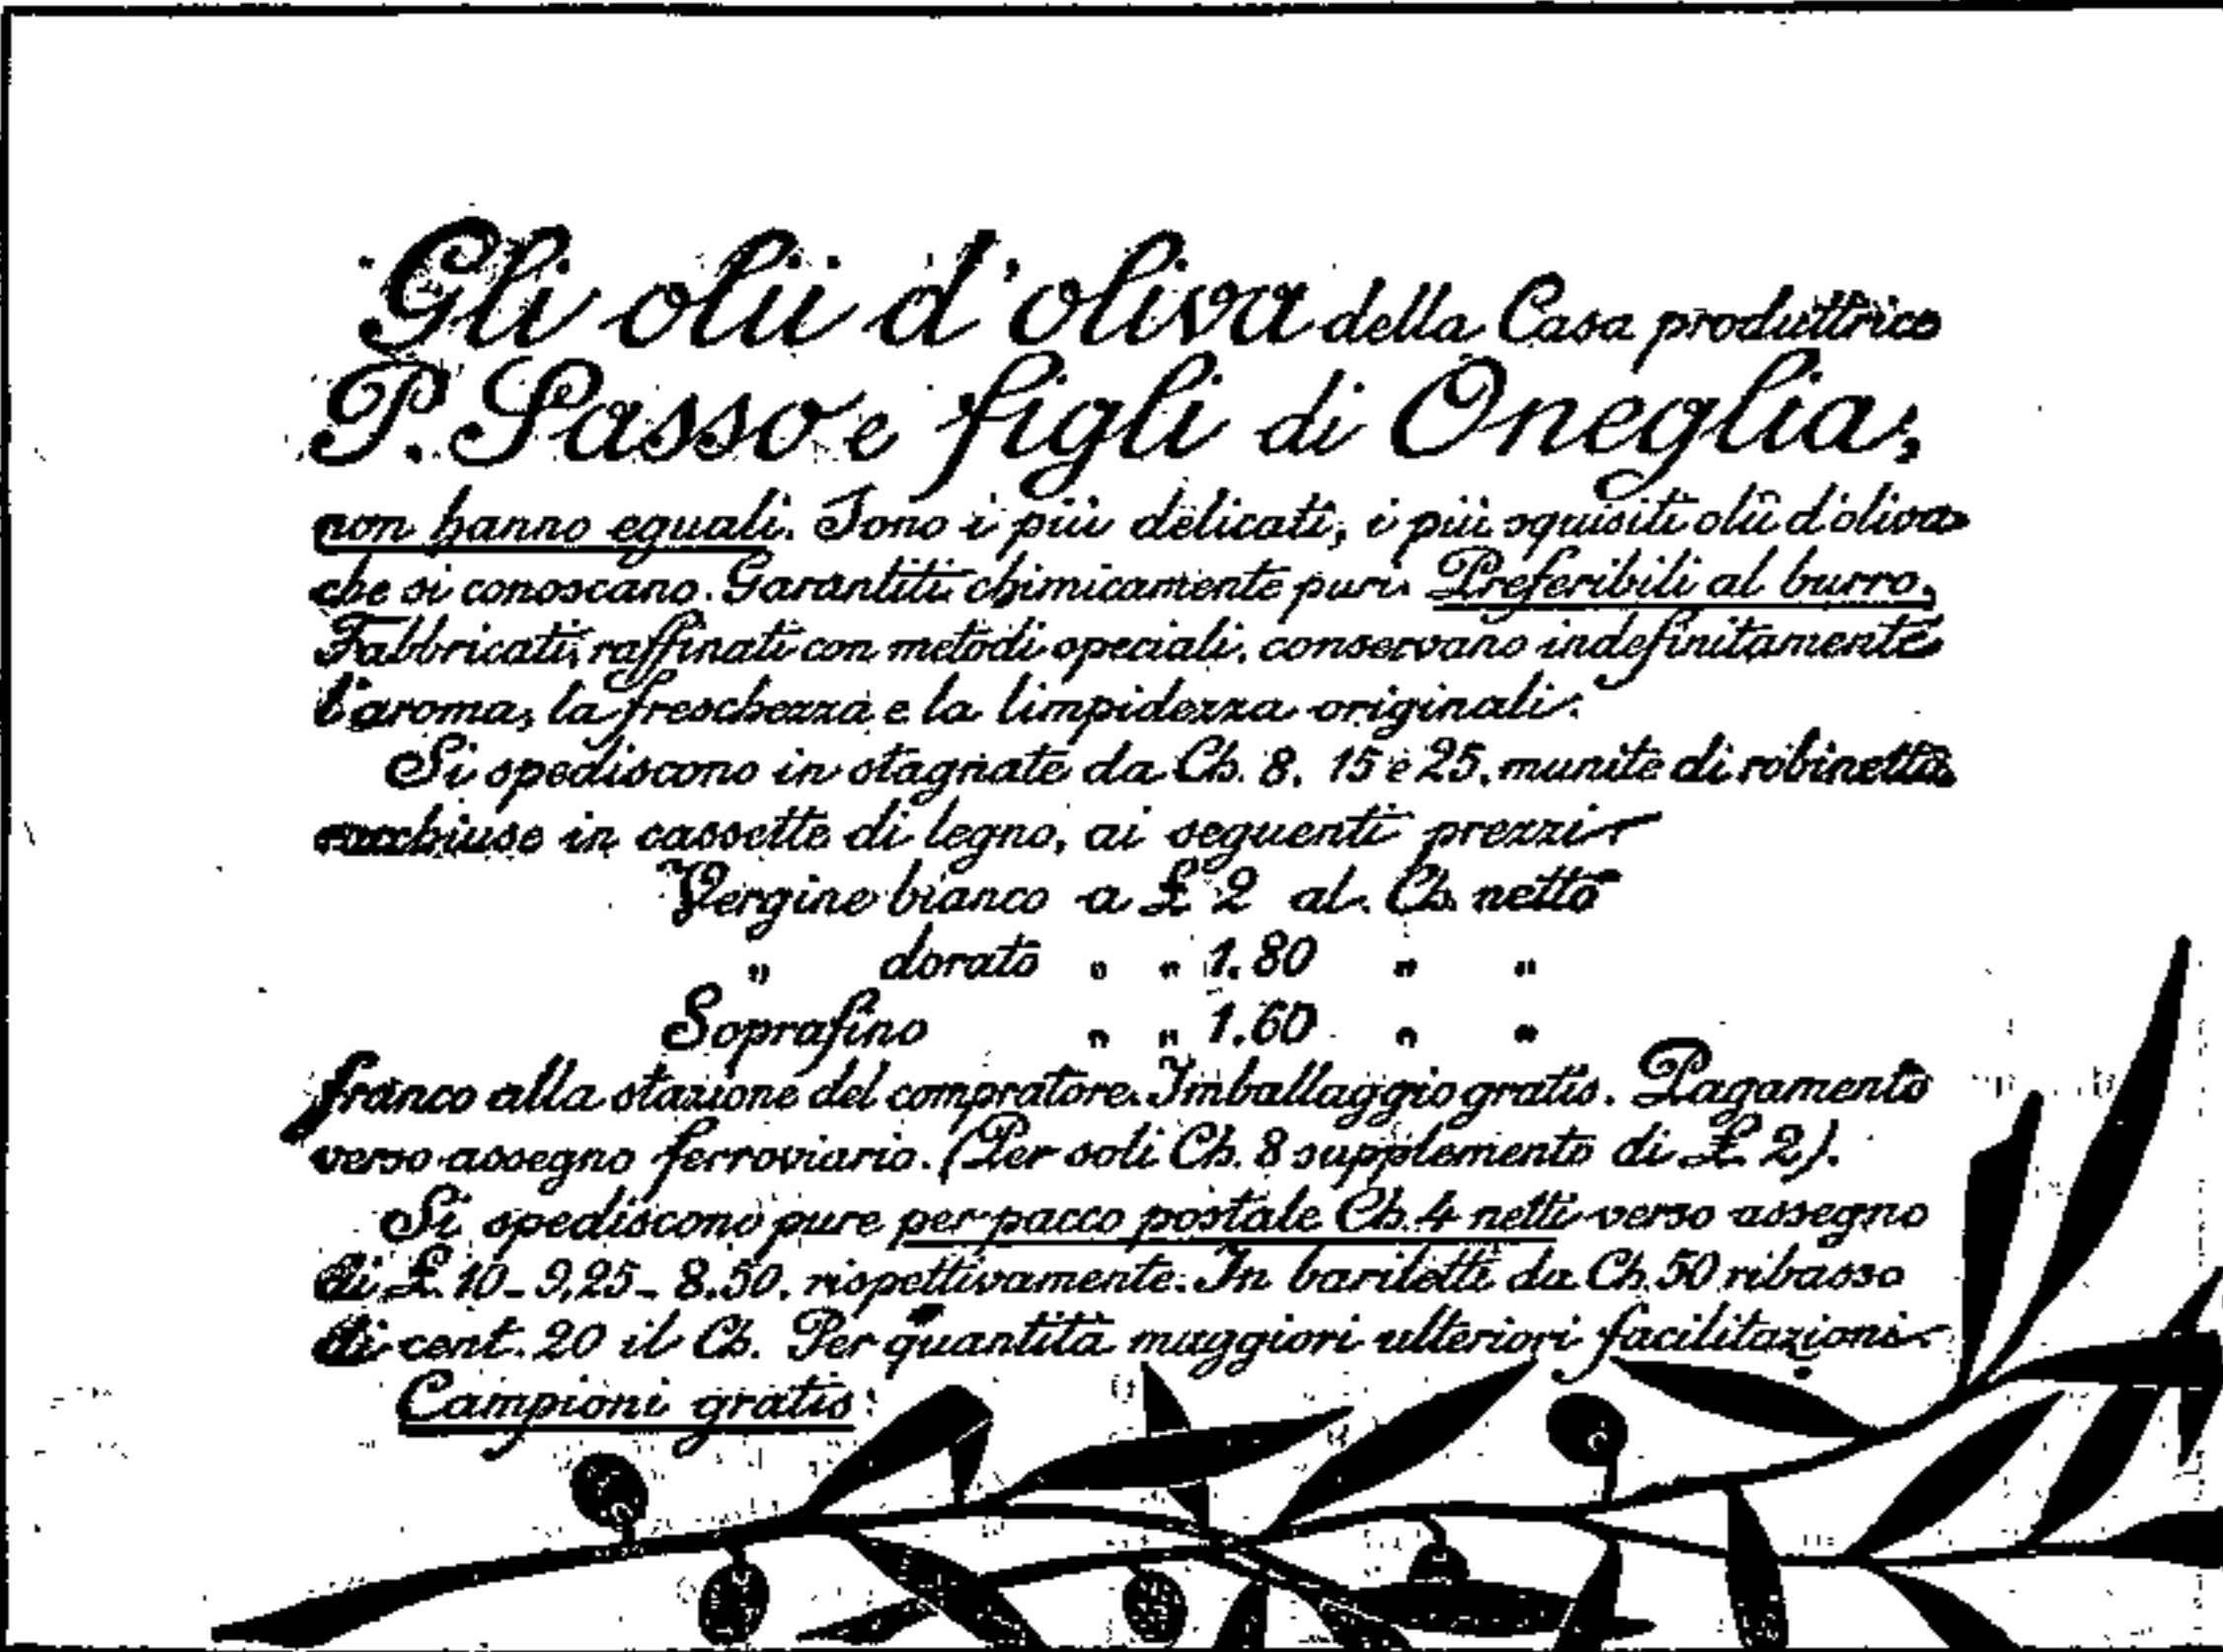 Gli olii d'oliva della Casa produttrice
P. Sasso e figli di Oneglia,
non hanno eguali. Sono i più delicati, i più squisiti olii d'oliva
che si conoscano. Garantiti chimicamente puri. Preferibili al burro.
Fabbricati, raffinati con metodi speciali, conservano indefinitamente
l'aroma, la freschezza e la limpidezza originali.
Si spediscono in stagnate da Ch. 8, 15 e 25, munite di robinetto
racchiuse in cassette di legno, ai seguenti prezzi
Vergine bianco a £ 2 al Ch. netto
" dorato " " 1.80 " "
Soprafino " " 1.60 " "
franco alla stazione del compratore. Imballaggio gratis. Pagamento
verso assegno ferroviario. (Per soli Ch. 8 supplemento di £. 2).
Si spediscono pure per pacco postale Ch. 4 netti verso assegno
di £. 10 - 9,25 - 8.50. rispettivamente. In bariletti da Ch. 50 ribasso
di cent. 20 il Ch. Per quantità maggiori ulteriori facilitazioni.
Campioni gratis.